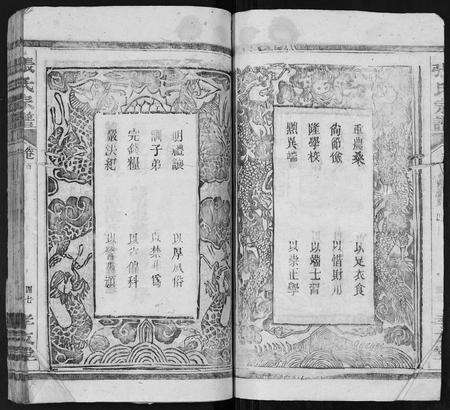 重農桑 以足衣食
尚節儉 以惜財用
隆學校 以端士習
黜異端 以崇正學
明禮讓 以厚風俗
訓子弟 以禁非為
完錢糧 以 科
嚴法紀 以 頑
張氏宗譜 卷